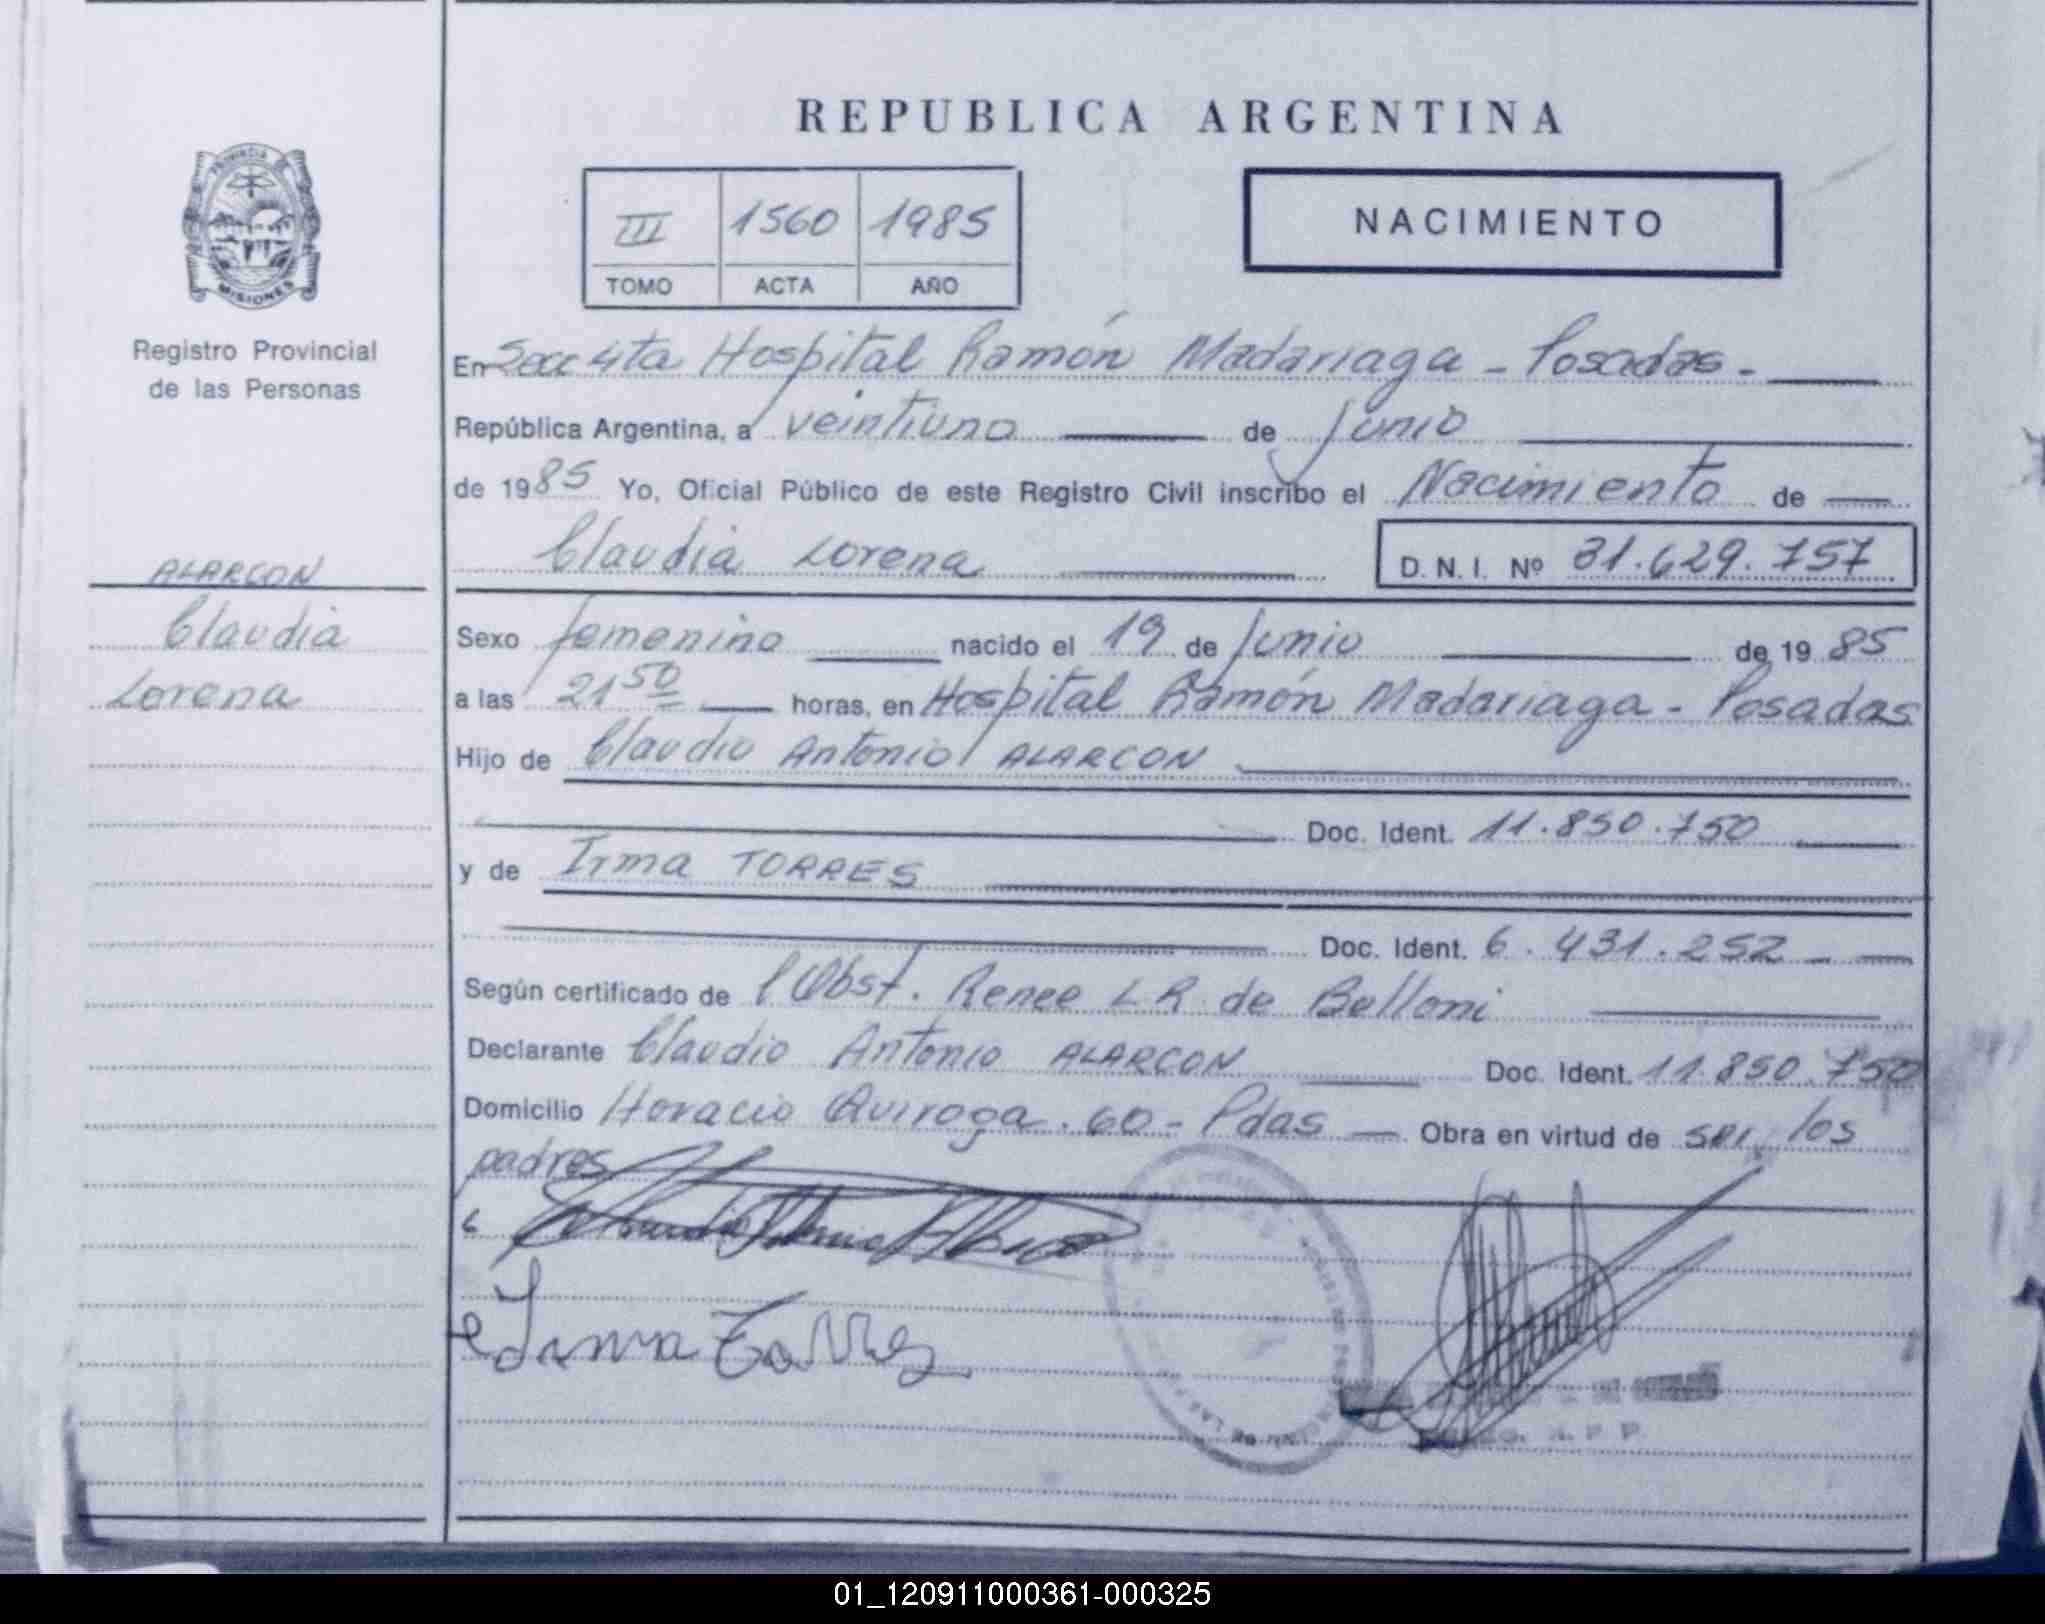 REPUBLICA ARGENTINA
PROVINCIA
MISIONES
Registro Provincial
de las Personas
III 1560 1985
TOMO ACTA AÑO
NACIMIENTO
ALARCON
Claudia
Lorena
En Secc 4ta Hospital Ramón Madariaga - Posadas -
República Argentina, a veintiuno de Junio
de 1985 Yo, Oficial Público de este Registro Civil inscribo el Nacimiento de
Claudia Lorena D. N. I. Nº 31.629.757
Sexo femenino nacido el 19 de Junio de 1985
a las 21 50 horas, en Hospital Ramón Madariaga - Posadas
Hijo de Claudio Antonio ALARCON
Doc. Ident. 11.850.750
y de Irma TORRES
Doc. Ident. 6.431.252
Según certificado de l Obst. Renee L R de Belloni
Declarante Claudio Antonio ALARCON Doc. Ident. 11.850.750
Domicilio Horacio Quiroga . 60 - Pdas Obra en virtud de ser los
padres
Irma Torres
01_120911000361-000325